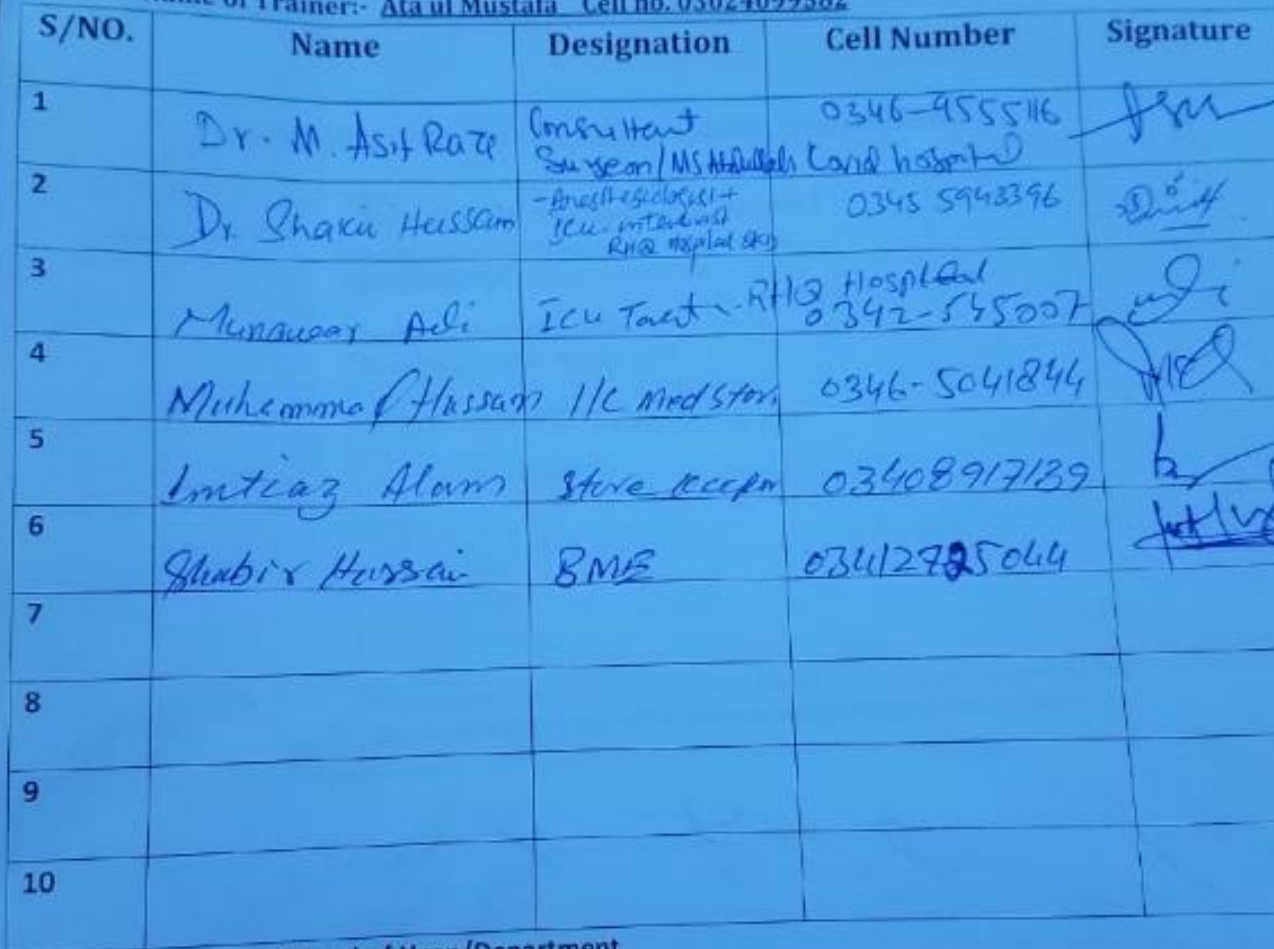 of Trainer:- Ata ul Mustafa Cell no. 03024099582
S/NO. Name Designation Cell Number Signature
1 Dr. M. Asif Raza Consultant 0346-9555116
Surgeon/MS Abdullah Covid hospital
2 Dr. Shakir Hussain -Anesthesiologist + 0345 5943396
ICU intensivist
RHQ Hospital
3 Munawar Ali ICU RHQ Hospital
0342-545007
4 Muhammad Hussain I/C Med Store 0346-5041844
5 Imtiaz Alam Store Keeper 03408917139
6 Shabir Hussain BME 03412725044
7
8
9
10
/Department